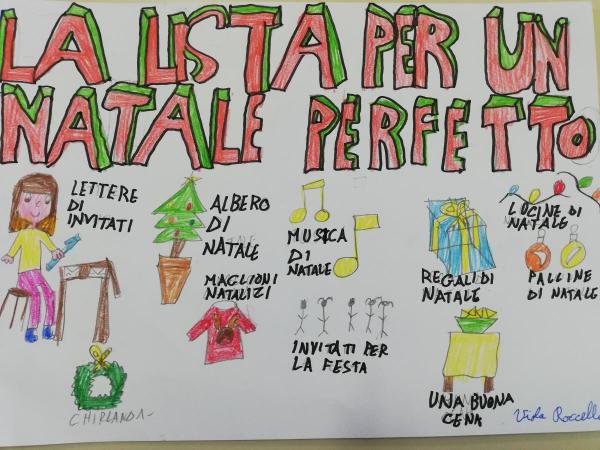 LA LISTA PER UN
NATALE PERFETTO
LETTERE
DI
INVITATI
ALBERO
DI
NATALE
MAGLIONI
NATALIZI
MUSICA
DI
NATALE
INVITATI PER
LA FESTA
REGALI DI
NATALE
LUCINE DI
NATALE
PALLINE
DI NATALE
GHIRLANDA
UNA BUONA
CENA
Viola Roccella